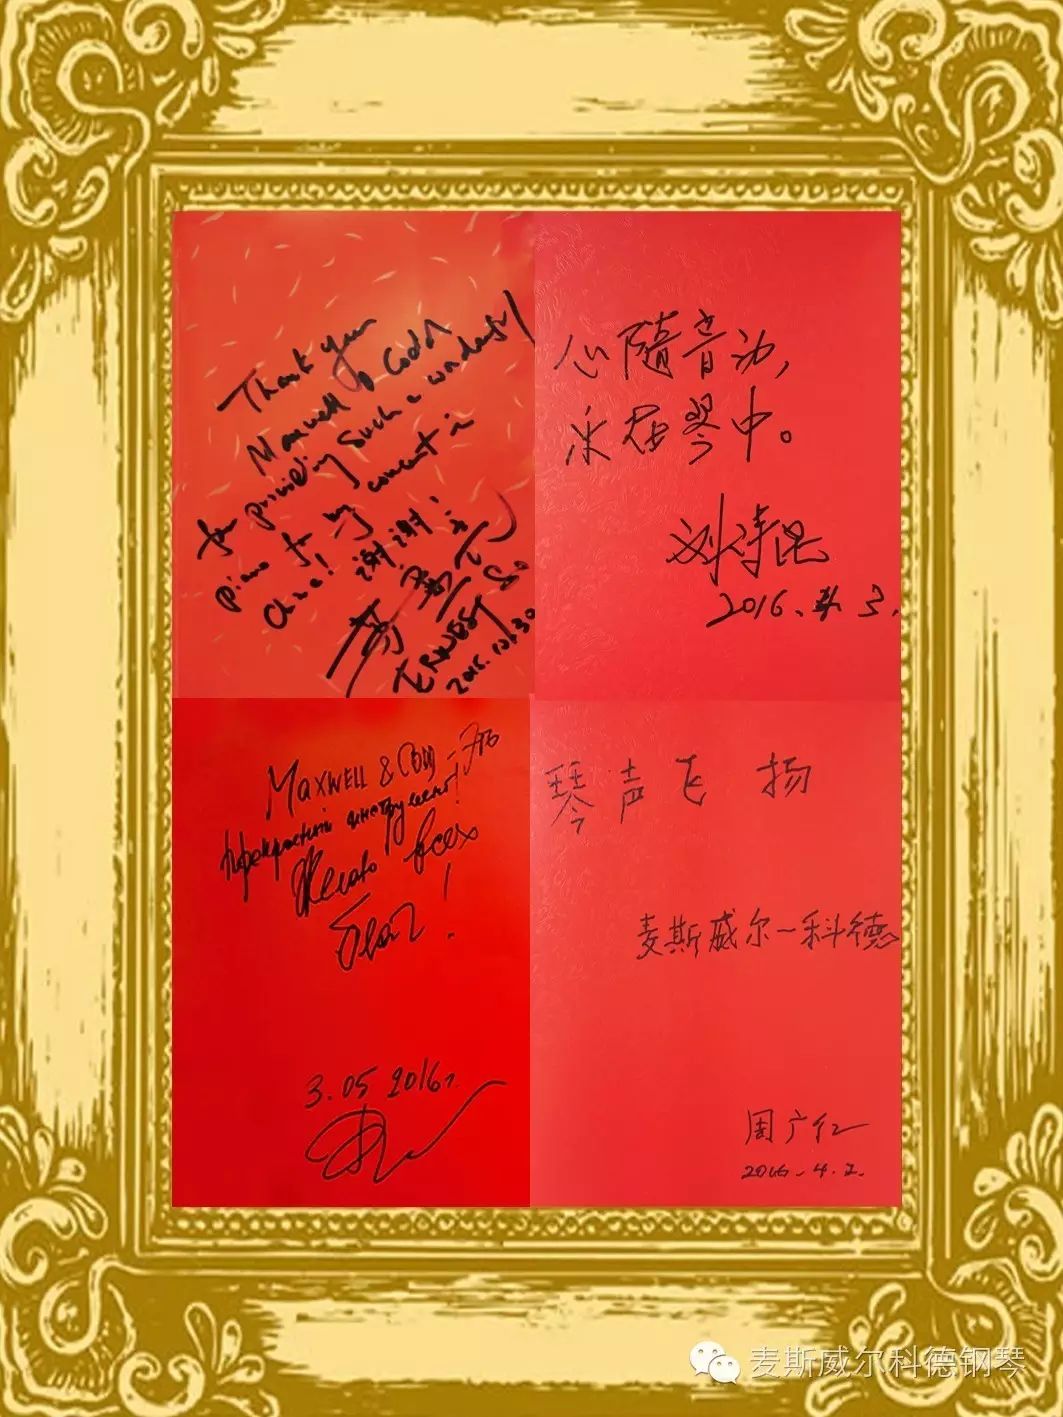 Thank you
Maxwell & Codd
for providing such a wonderful
piano for my concert in
China! 谢谢!
ERNEST So
心隨音动,
永在琴中。
刘诗昆
2016.4.3.
MAXWELL & CODD - Это
прекрасный инструмент!
Желаю всех
благ!
3.05 2016г.
琴声飞扬
麦斯威尔一科德
周广仁
2016.4.2.
麦斯威尔科德钢琴